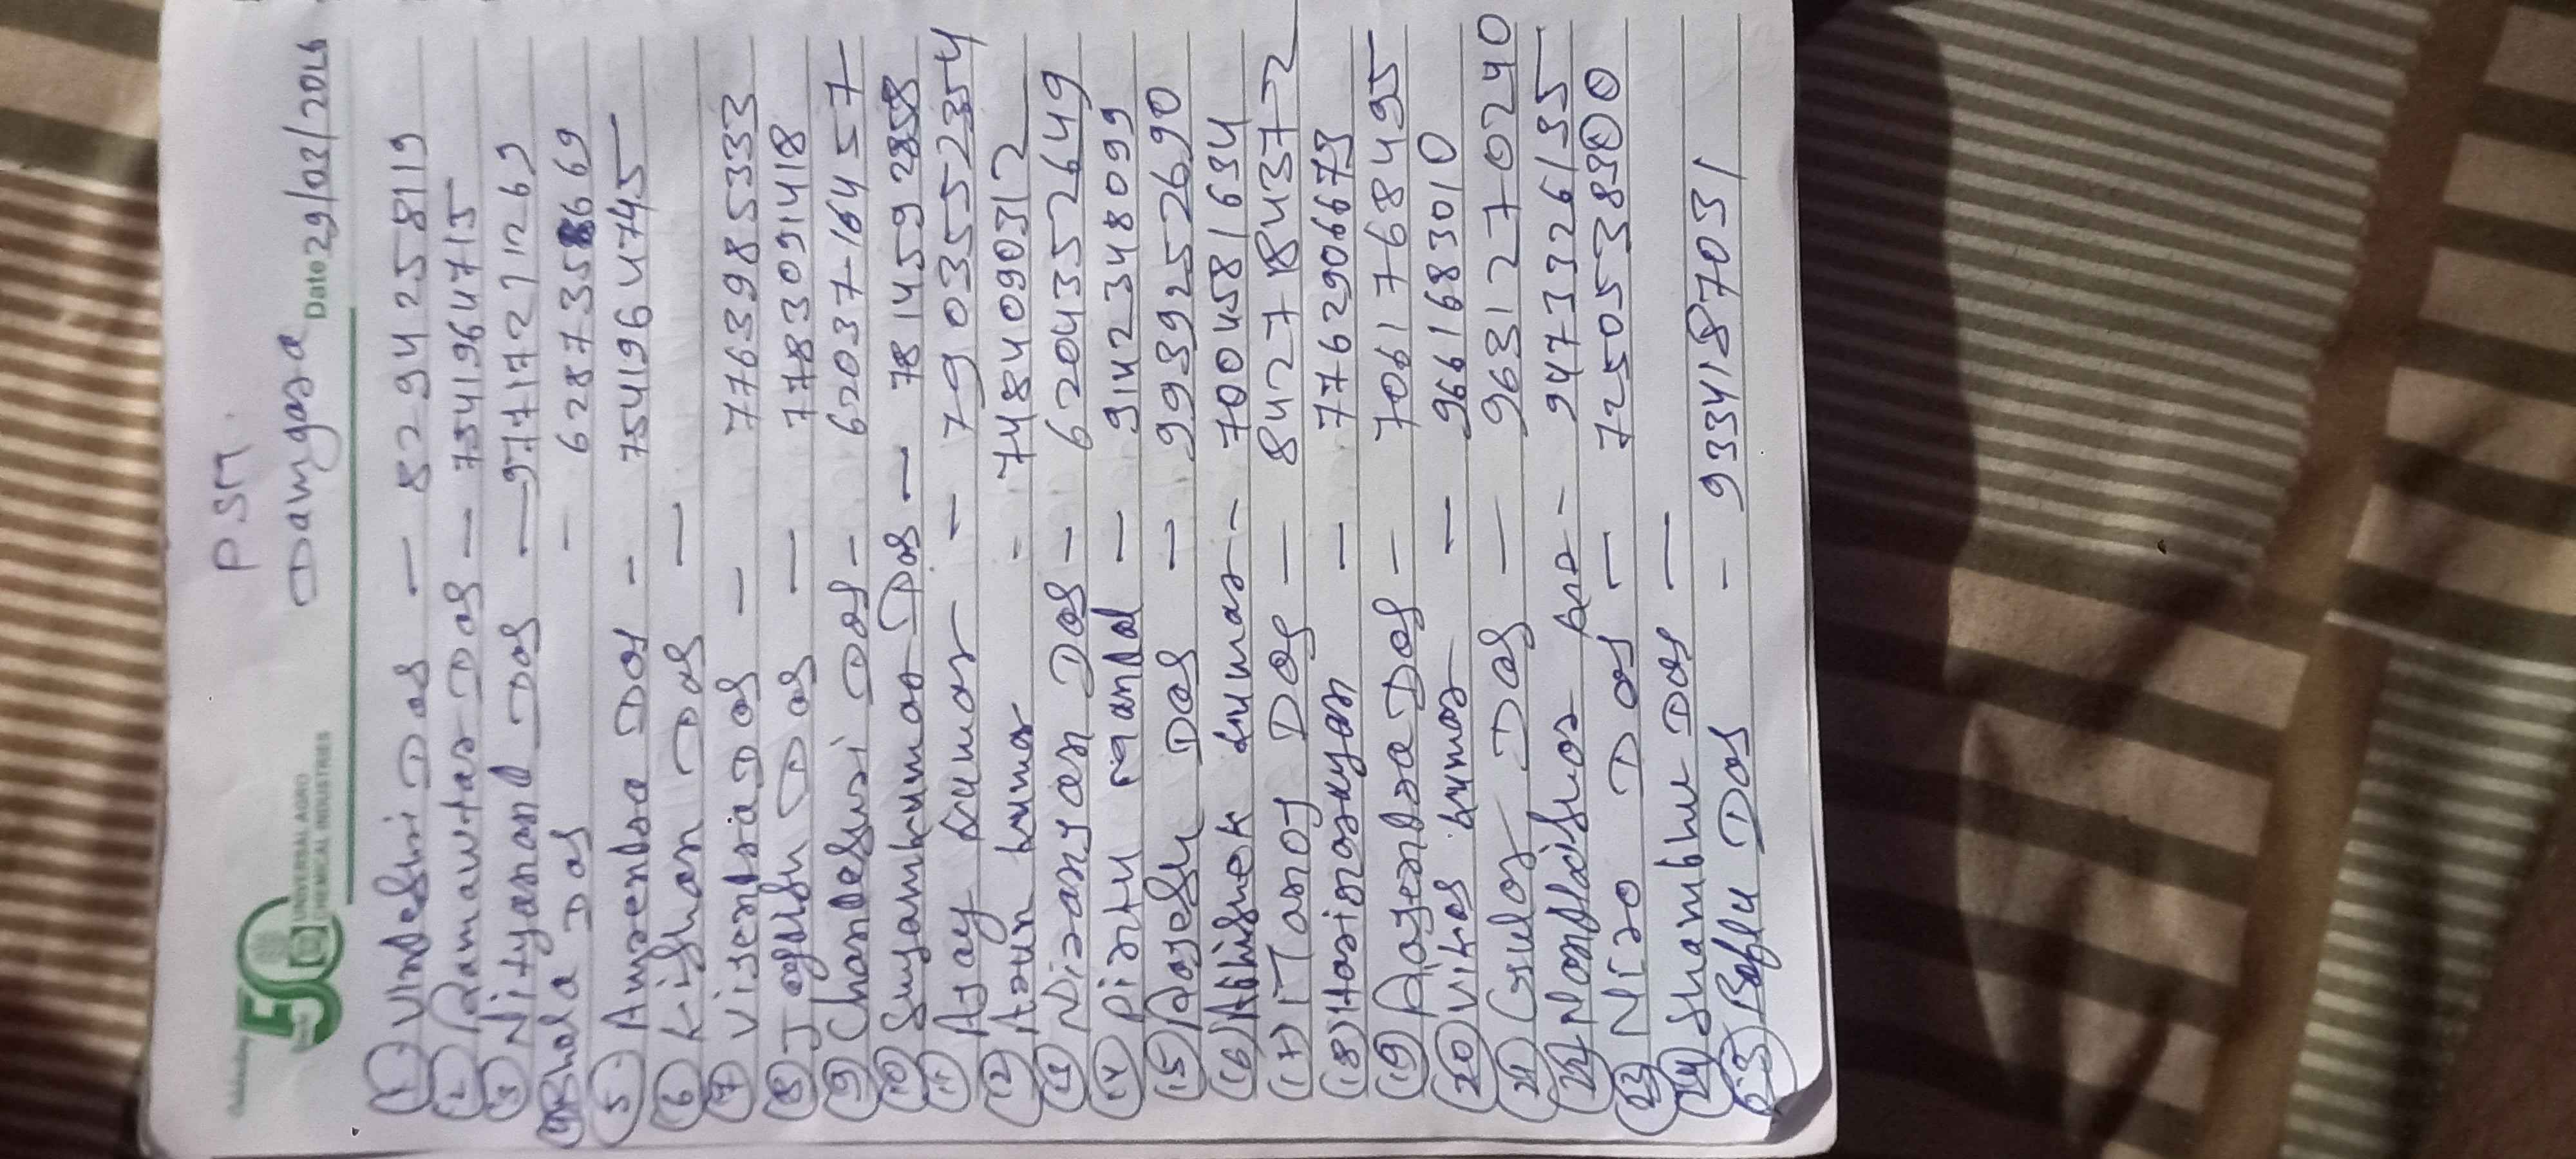 PSM.
Dangara
Celebrating
50
UNIVERSAL AGRO
CHEMICAL INDUSTRIES
Date 29/03/2026
1 Vindeshri Das - 8294258119
2 Ramawtar Das - 7541964715
3 Nityanand Das - 9771721269
4 Bhola Das - 6287358669
5 Amrendra Das - 7541964745
6 Kishan Das -
7 Virendra Das - 7763985333
8 Jogesh Das - 7783091418
9 Chandeshri Das - 6203716457
10 Shyamkumar Das - 7814592858
11 Ajay kumar - 7903552354
12 Arun kumar - 7484090312
13 Niranjan Das - 6204352649
14 Pintu mandal - 9142348099
15 Rajesh Das - 9939252690
16 Abhishek kumar - 7004581634
17 Manoj Das - 8427184372
18 Harinarayan - 7762906673
19 Rajendra Das - 7061768495
20 Vikas kumar - 9661683010
21 Gulas Das - 9631270240
22 Nandkishor - 9473326135
23 Niro Das - 7250538300
24 Shambhu Das -
25 Das - 9334187031